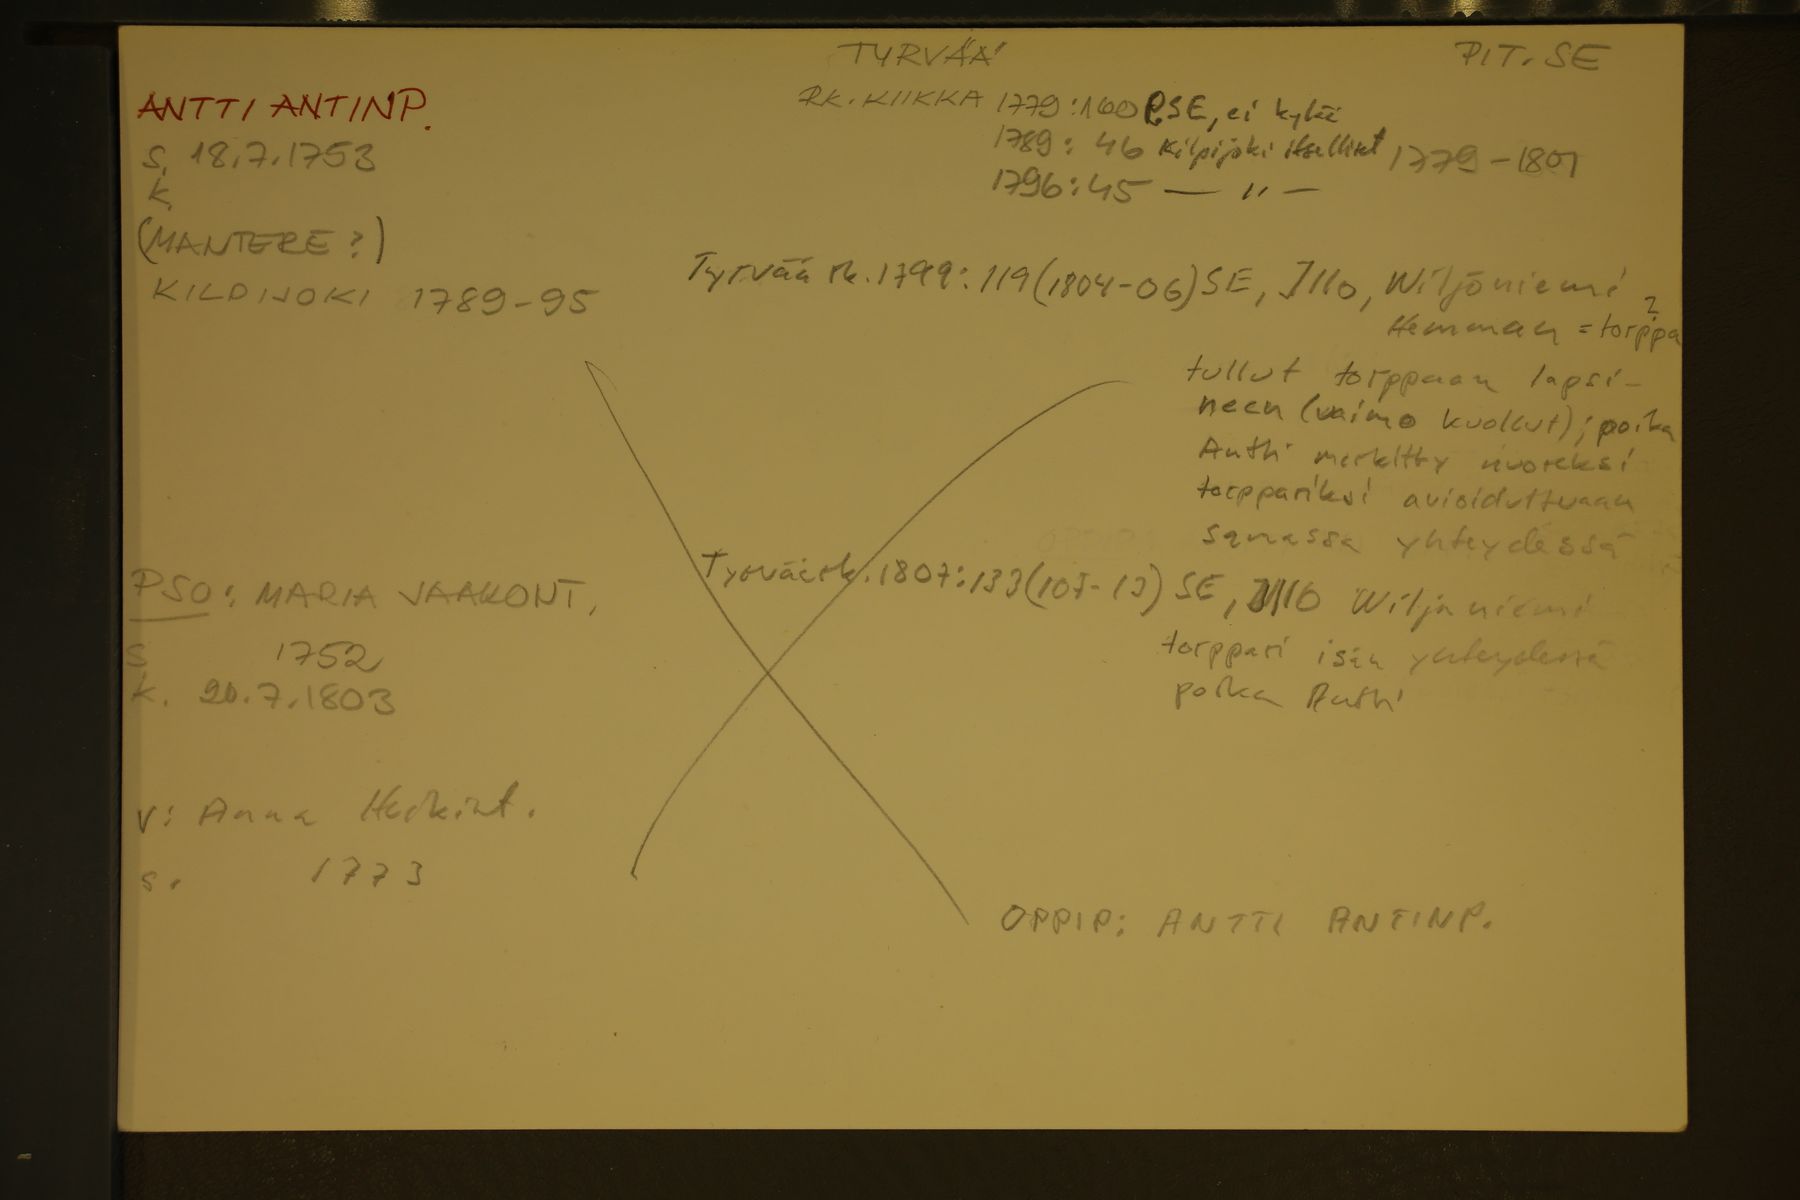 TYRVÄÄ
PIT. SE
ANTTI ANTINP.
S. 18.7.1753
K.
(MANTERE?)
KILPIJOKI 1789-95
RK. KIIKKA 1779:160 P.SE, ei kylää
1789: 46 Kilpijoki itselliset 1779-1801
1796:45 — " —
Tyrvää rk. 1799: 119 (1804-06) SE, Illo, Wiljoniemi
Hemman = torppa ?
tullut torppaan lapsi-
neen (vaimo kuollut); poika
Antti merkitty nuoreksi
torppariksi avioiduttuaan
samassa yhteydessä
Tyrvää rk. 1807:133 (107-13) SE, Illo Wiljaniemi
torppari isän yhteydessä
poika Antti
PSO: MARIA JAAKONT.
S 1752
K. 20.7.1803
V: Anna Heikint.
s. 1773
OPPIP: ANTTI ANTINP.